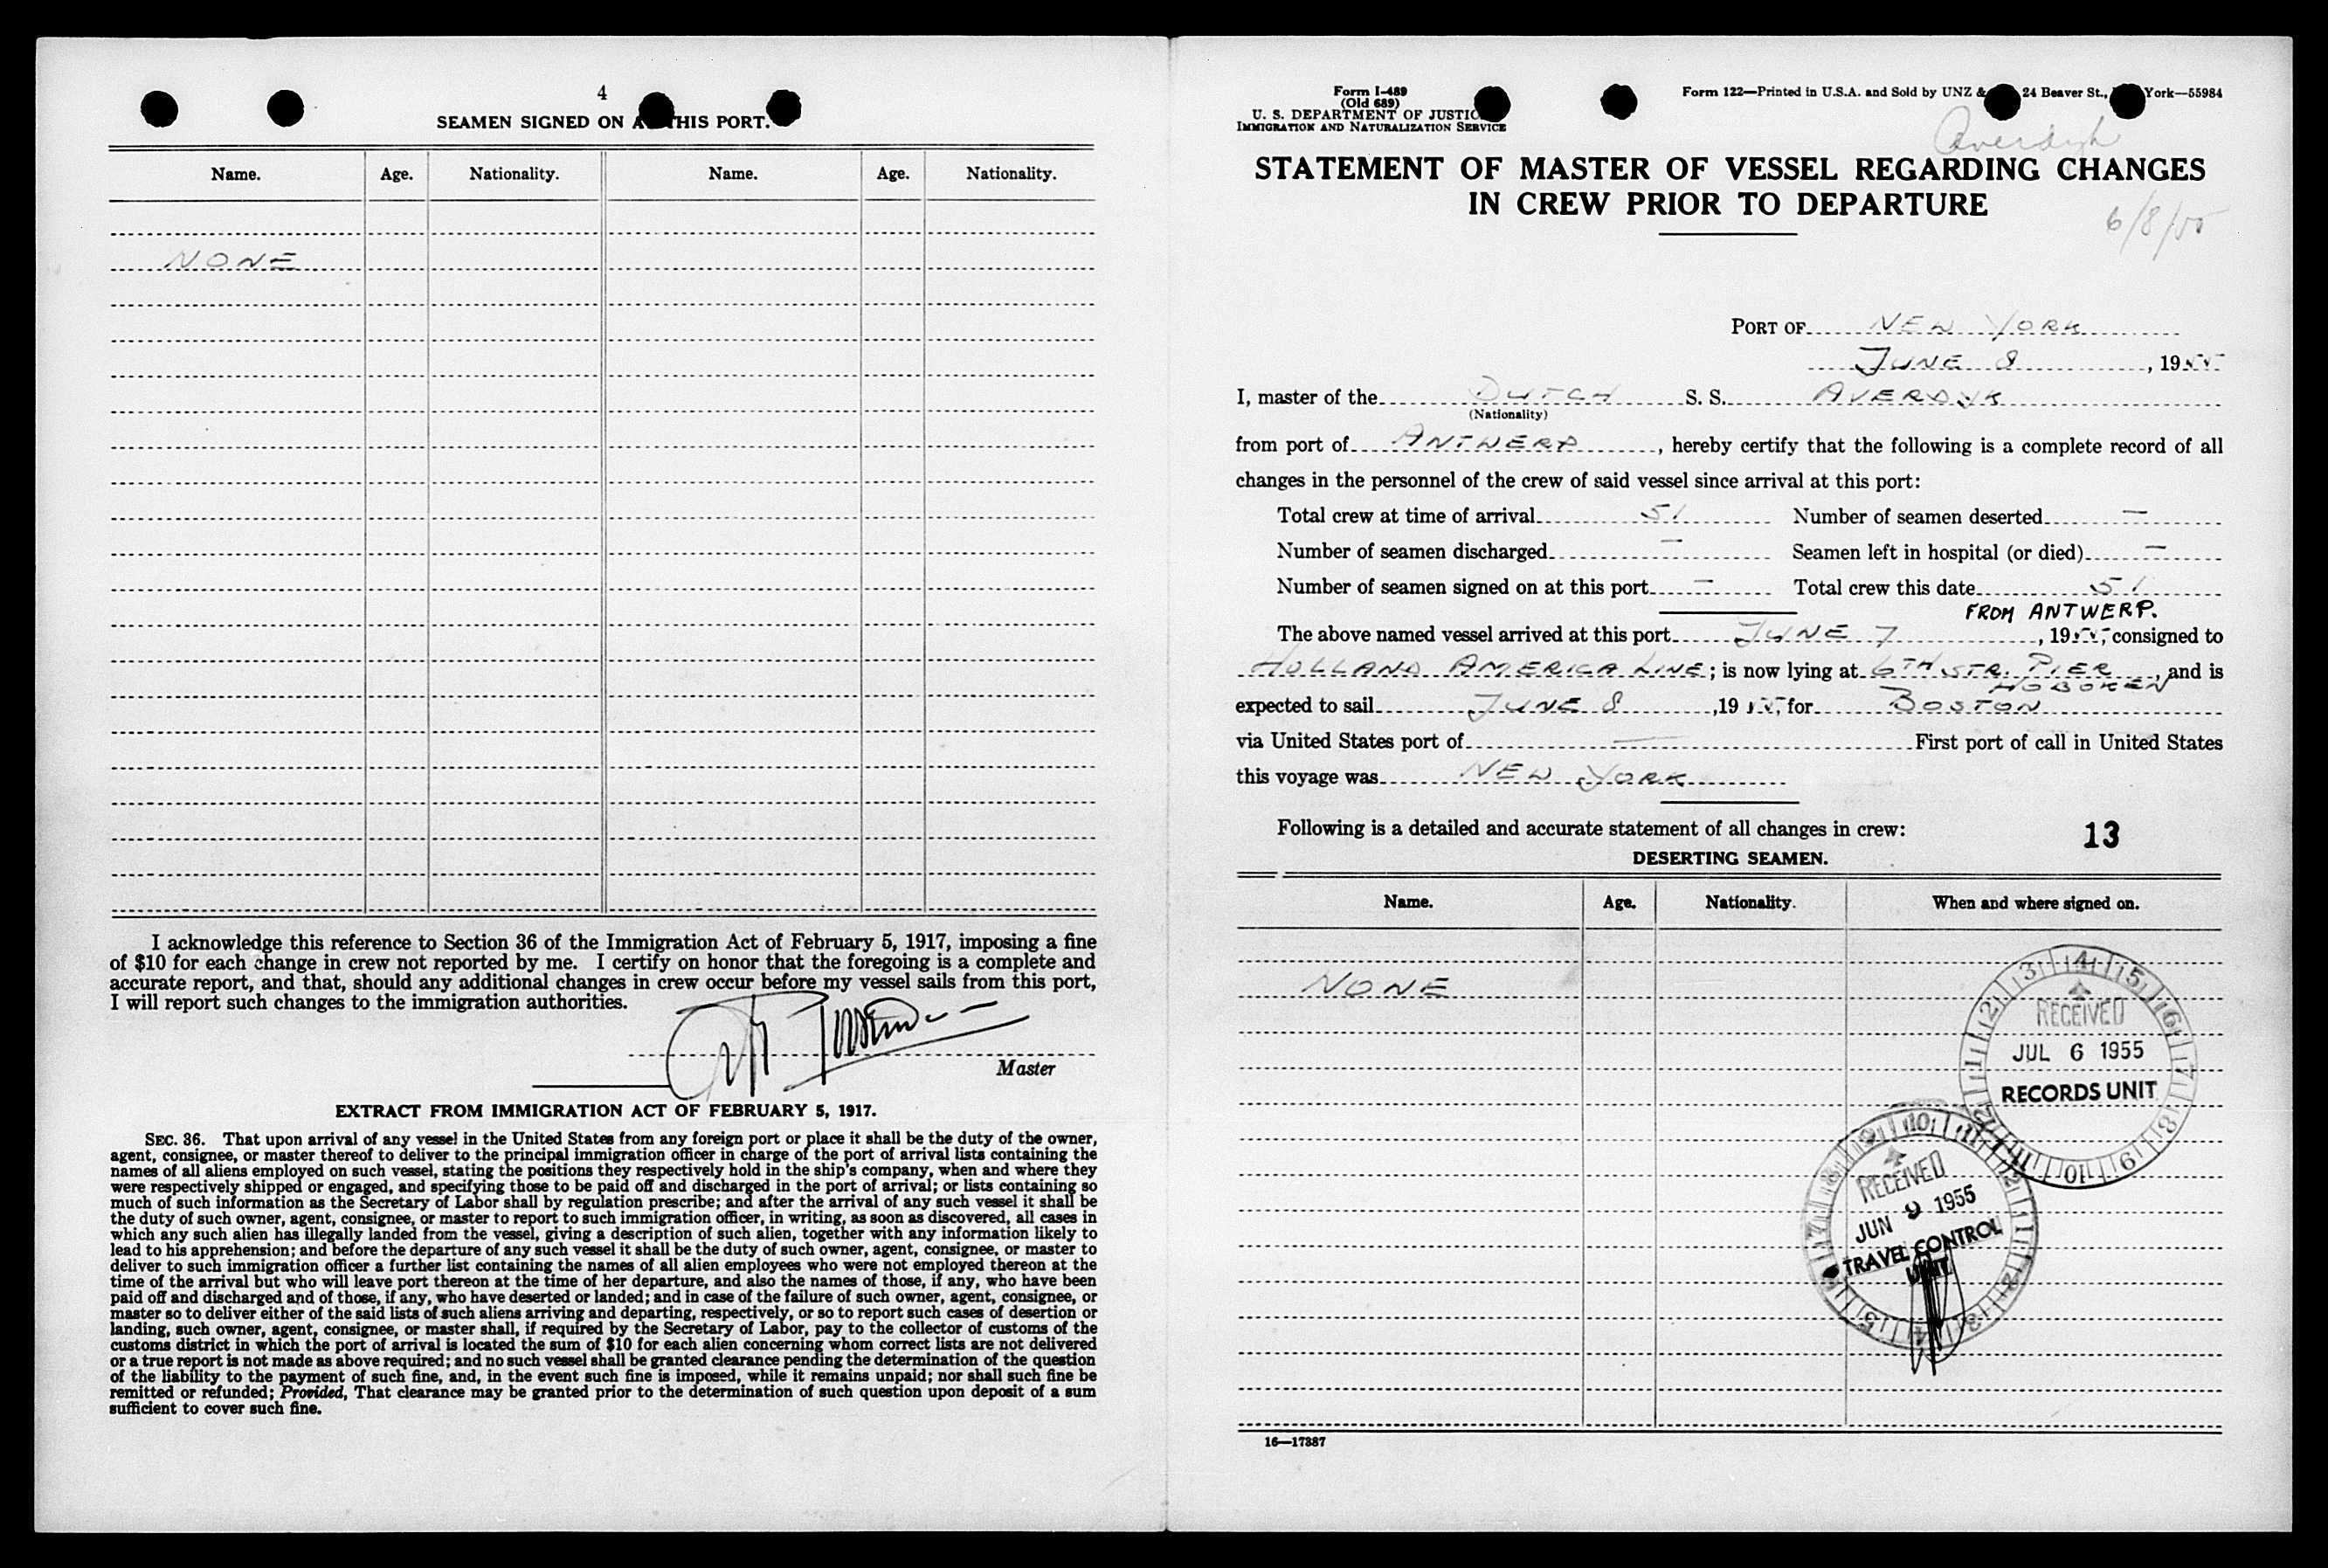 4
SEAMEN SIGNED ON HIS PORT.
Name. Age. Nationality. Name. Age. Nationality.
NONE
I acknowledge this reference to Section 36 of the Immigration Act of February 5, 1917, imposing a fine
of $10 for each change in crew not reported by me. I certify on honor that the foregoing is a complete and
accurate report, and that, should any additional changes in crew occur before my vessel sails from this port,
I will report such changes to the immigration authorities.
Master
EXTRACT FROM IMMIGRATION ACT OF FEBRUARY 5, 1917.
SEC. 36. That upon arrival of any vessel in the United States from any foreign port or place it shall be the duty of the owner,
agent, consignee, or master thereof to deliver to the principal immigration officer in charge of the port of arrival lists containing the
names of all aliens employed on such vessel, stating the positions they respectively hold in the ship's company, when and where they
were respectively shipped or engaged, and specifying those to be paid off and discharged in the port of arrival; or lists containing so
much of such information as the Secretary of Labor shall by regulation prescribe; and after the arrival of any such vessel it shall be
the duty of such owner, agent, consignee, or master to report to such immigration officer, in writing, as soon as discovered, all cases in
which any such alien has illegally landed from the vessel, giving a description of such alien, together with any information likely to
lead to his apprehension; and before the departure of any such vessel it shall be the duty of such owner, agent, consignee, or master to
deliver to such immigration officer a further list containing the names of all alien employees who were not employed thereon at the
time of the arrival but who will leave port thereon at the time of her departure, and also the names of those, if any, who have been
paid off and discharged and of those, if any, who have deserted or landed; and in case of the failure of such owner, agent, consignee, or
master so to deliver either of the said lists of such aliens arriving and departing, respectively, or so to report such cases of desertion or
landing, such owner, agent, consignee, or master shall, if required by the Secretary of Labor, pay to the collector of customs of the
customs district in which the port of arrival is located the sum of $10 for each alien concerning whom correct lists are not delivered
or a true report is not made as above required; and no such vessel shall be granted clearance pending the determination of the question
of the liability to the payment of such fine, and, in the event such fine is imposed, while it remains unpaid; nor shall such fine be
remitted or refunded; Provided, That clearance may be granted prior to the determination of such question upon deposit of a sum
sufficient to cover such fine.
Form I-489
(Old 689)
U. S. DEPARTMENT OF JUSTIC
IMMIGRATION AND NATURALIZATION SERVICE
Form 122—Printed in U.S.A. and Sold by UNZ & 24 Beaver St., York—55984
Averdyk
STATEMENT OF MASTER OF VESSEL REGARDING CHANGES
IN CREW PRIOR TO DEPARTURE
6/8/55
PORT OF NEW YORK
JUNE 8, 1955
I, master of the DUTCH S. S. AVERDYK
(Nationality)
from port of ANTWERP, hereby certify that the following is a complete record of all
changes in the personnel of the crew of said vessel since arrival at this port:
Total crew at time of arrival 51 Number of seamen deserted —
Number of seamen discharged — Seamen left in hospital (or died) —
Number of seamen signed on at this port — Total crew this date 51
FROM ANTWERP.
The above named vessel arrived at this port JUNE 7, 1955, consigned to
HOLLAND AMERICA LINE; is now lying at 6TH STR. PIER, and is
HOBOKEN
expected to sail JUNE 8, 1955, for BOSTON
via United States port of — First port of call in United States
this voyage was NEW YORK
Following is a detailed and accurate statement of all changes in crew:
13
DESERTING SEAMEN.
Name. Age. Nationality. When and where signed on.
NONE
RECEIVED
JUL 6 1955
RECORDS UNIT
RECEIVED
JUN 9 1955
TRAVEL CONTROL
UNIT
16—17387